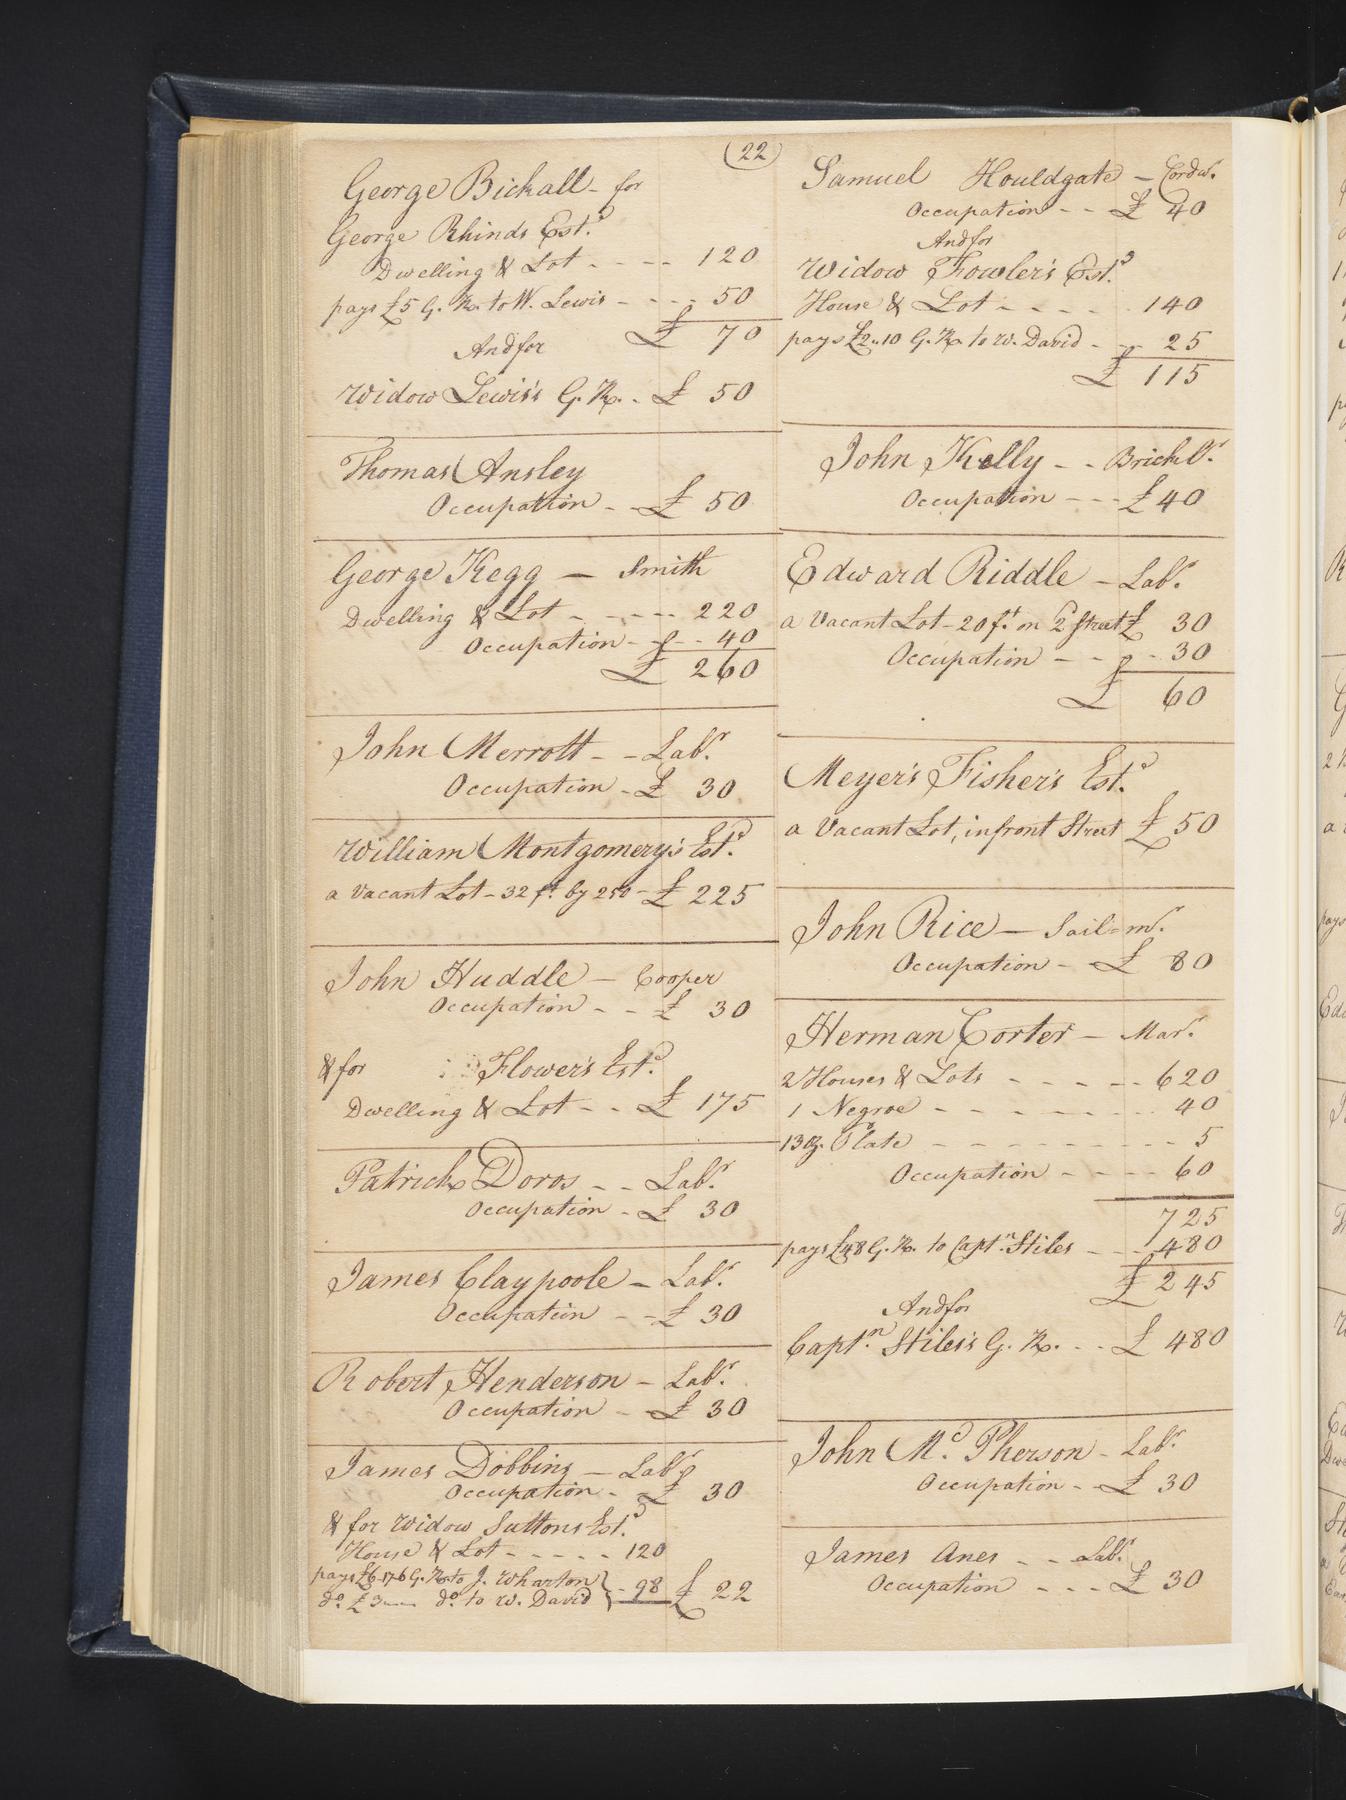 22
George Bickall - for
George Rhinds Est.ᵈ
Dwelling & Lot - - - - 120
pays £5 G. R. to W. Lewis - - - - 50
£ 70
And for
Widow Lewis's G. R. - £ 50
Thomas Ansley
Occupation - - £ 50
George Kegg — Smith
Dwelling & Lot - - - - - 220
Occupation - - - - 40
£ 260
John Merrott - - Lab.ʳ
Occupation - £ 30
William Montgomery's Est.ᵈ
a Vacant Lot - 32 f.ᵗ by 250 - £ 225
John Huddle - Cooper
Occupation - - £ 30
& for Flower's Est.ᵈ
Dwelling & Lot - - £ 175
Patrick Doros - - Lab.ʳ
Occupation - £ 30
James Claypoole - Lab.ʳ
Occupation - - £ 30
Robert Henderson - Lab.ʳ
Occupation - - £ 30
James Dobbins - Lab.ʳ
Occupation - £ 30
& for Widow Suttons Est.ᵈ
House & Lot - - - - - 120
pays £6-17-6 G. R. to J. Wharton
d.º £3 d.º to W. David - 98 £ 22
Samuel Houldgate - Cordw.ʳ
Occupation - - £ 40
And for
Widow Fowler's Est.ᵈ
House & Lot - - - - - 140
pays £2..10 G. R. to W. David - - 25
£ 115
John Kelly - - Brickl.ʳ
Occupation - - - £ 40
Edward Riddle - Lab.ʳ
a Vacant Lot - 20 f.ᵗ on 2ᵈ Street £ 30
Occupation - - - 30
£ 60
Meyer's Fisher's Est.ᵈ
a Vacant Lot, in front Street £ 50
John Rice — Sail=m.ʳ
Occupation - - £ 80
Herman Corter - Mar.ʳ
2 Houses & Lots - - - - - 620
1 Negroe - - - - - - - 40
13 oz. Plate - - - - - - - - 5
Occupation - - - - 60
725
pays £48 G. R. to Capt.ⁿ Stiles - - - 480
£ 245
And for
Capt.ⁿ Stiles's G. R. - - £ 480
John M.ᶜ Pherson - Lab.ʳ
Occupation - - £ 30
James Anes - - - Lab.ʳ
Occupation - - - £ 30